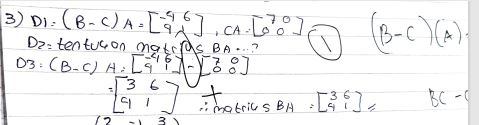 3) D1: (B-C) A = [-4 6 9 1], CA = [-7 0 0 0] ① (B-C)(A)
D2: tentukan matriks BA...?
D3: (B-C) A = [-4 6 9 1] - [7 0 0 0]
= [3 6 9 1] ∴ matriks BA = [3 6 9 1] BC -